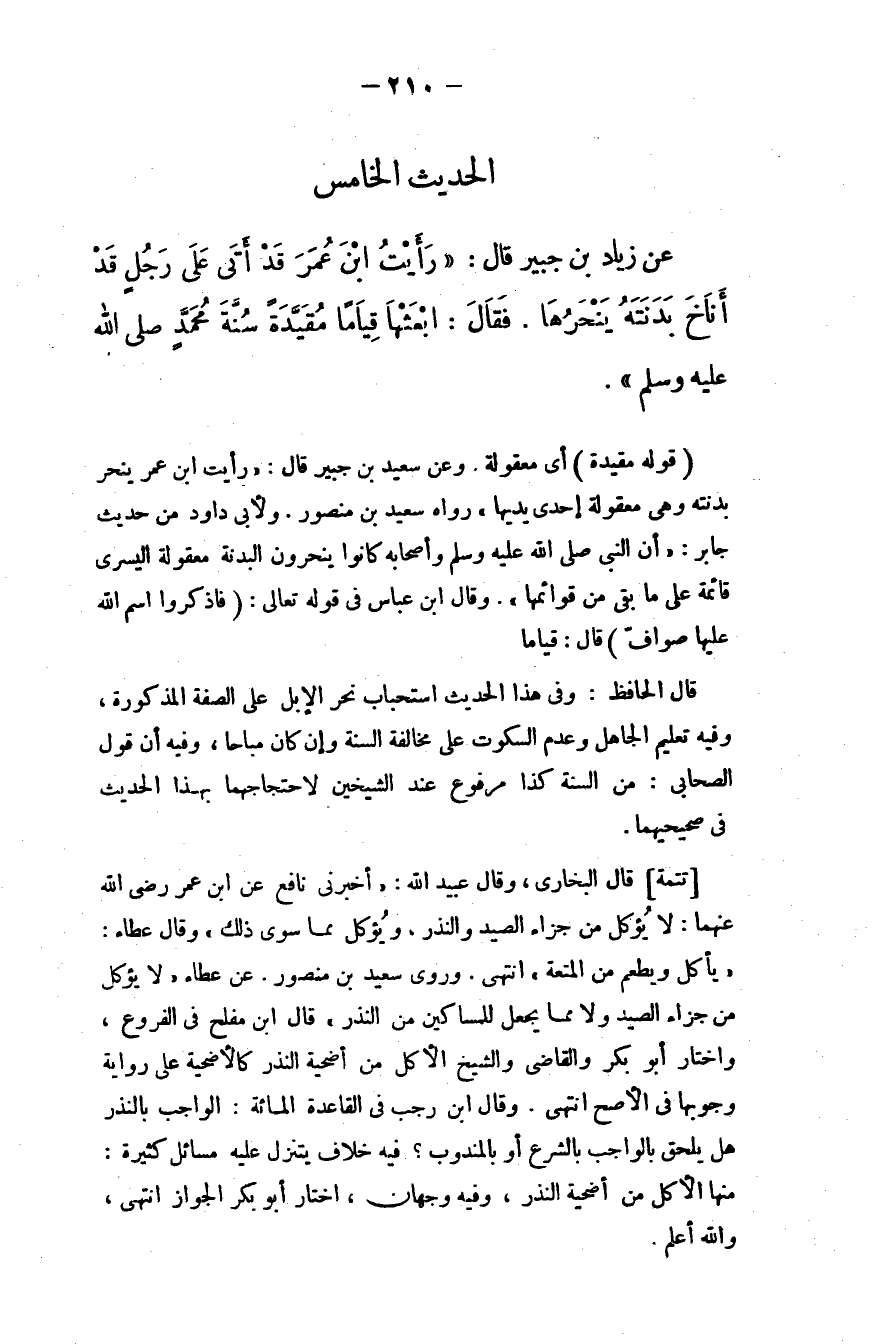 — ٢١٠ —
الحديث الخامس
عن زياد بن جبير قال : « رَأَيْتُ ابْنَ عُمَرَ قَدْ أَتَى عَلَى رَجُلٍ قَدْ
أَنَاخَ بَدَنَتَهُ يَنْحَرُهَا . فَقَالَ : ابْعَثْهَا قِيَامًا مُقَيَّدَةً سُنَّةَ مُحَمَّدٍ صلى الله
عليه وسلم » .
( قوله مقيدة ) أى معقولة . وعن سعيد بن جبير قال : « رأيت ابن عمر ينحر
بدنته وهى معقولة إحدى يديها » رواه سعيد بن منصور . ولأبى داود من حديث
جابر : « أن النبى صلى الله عليه وسلم وأصحابه كانوا ينحرون البدنة معقولة اليسرى
قائمة على ما بقى من قوائمها » . وقال ابن عباس فى قوله تعالى : ( فاذكروا اسم الله
عليها صوافّ ) قال : قياما
قال الحافظ : وفى هذا الحديث استحباب نحر الإبل على الصفة المذكورة ،
وفيه تعليم الجاهل وعدم السكوت على مخالفة السنة وإن كان مباحا ، وفيه أن قول
الصحابى : من السنة كذا مرفوع عند الشيخين لاحتجاجهما بهذا الحديث
فى صحيحيهما .
[تتمة] قال البخارى ، وقال عبيد الله : « أخبرنى نافع عن ابن عمر رضى الله
عنهما : لا يُؤكل من جزاء الصيد والنذر . ويُؤكل مما سوى ذلك » وقال عطاء :
« يأكل ويطعم من المتعة » انتهى . وروى سعيد بن منصور . عن عطاء « لا يؤكل
من جزاء الصيد ولا مما يجعل للمساكين من النذر » قال ابن مفلح فى الفروع ،
واختار أبو بكر والقاضى والشيخ الأكل من أضحية النذر كالأضحية على رواية
وجوبها فى الأصح انتهى . وقال ابن رجب فى القاعدة المائة : الواجب بالنذر
هل يلحق بالواجب بالشرع أو بالمندوب ؟ فيه خلاف يتنزل عليه مسائل كثيرة :
منها الأكل من أضحية النذر ، وفيه وجهان ، اختار أبو بكر الجواز انتهى ،
والله أعلم .